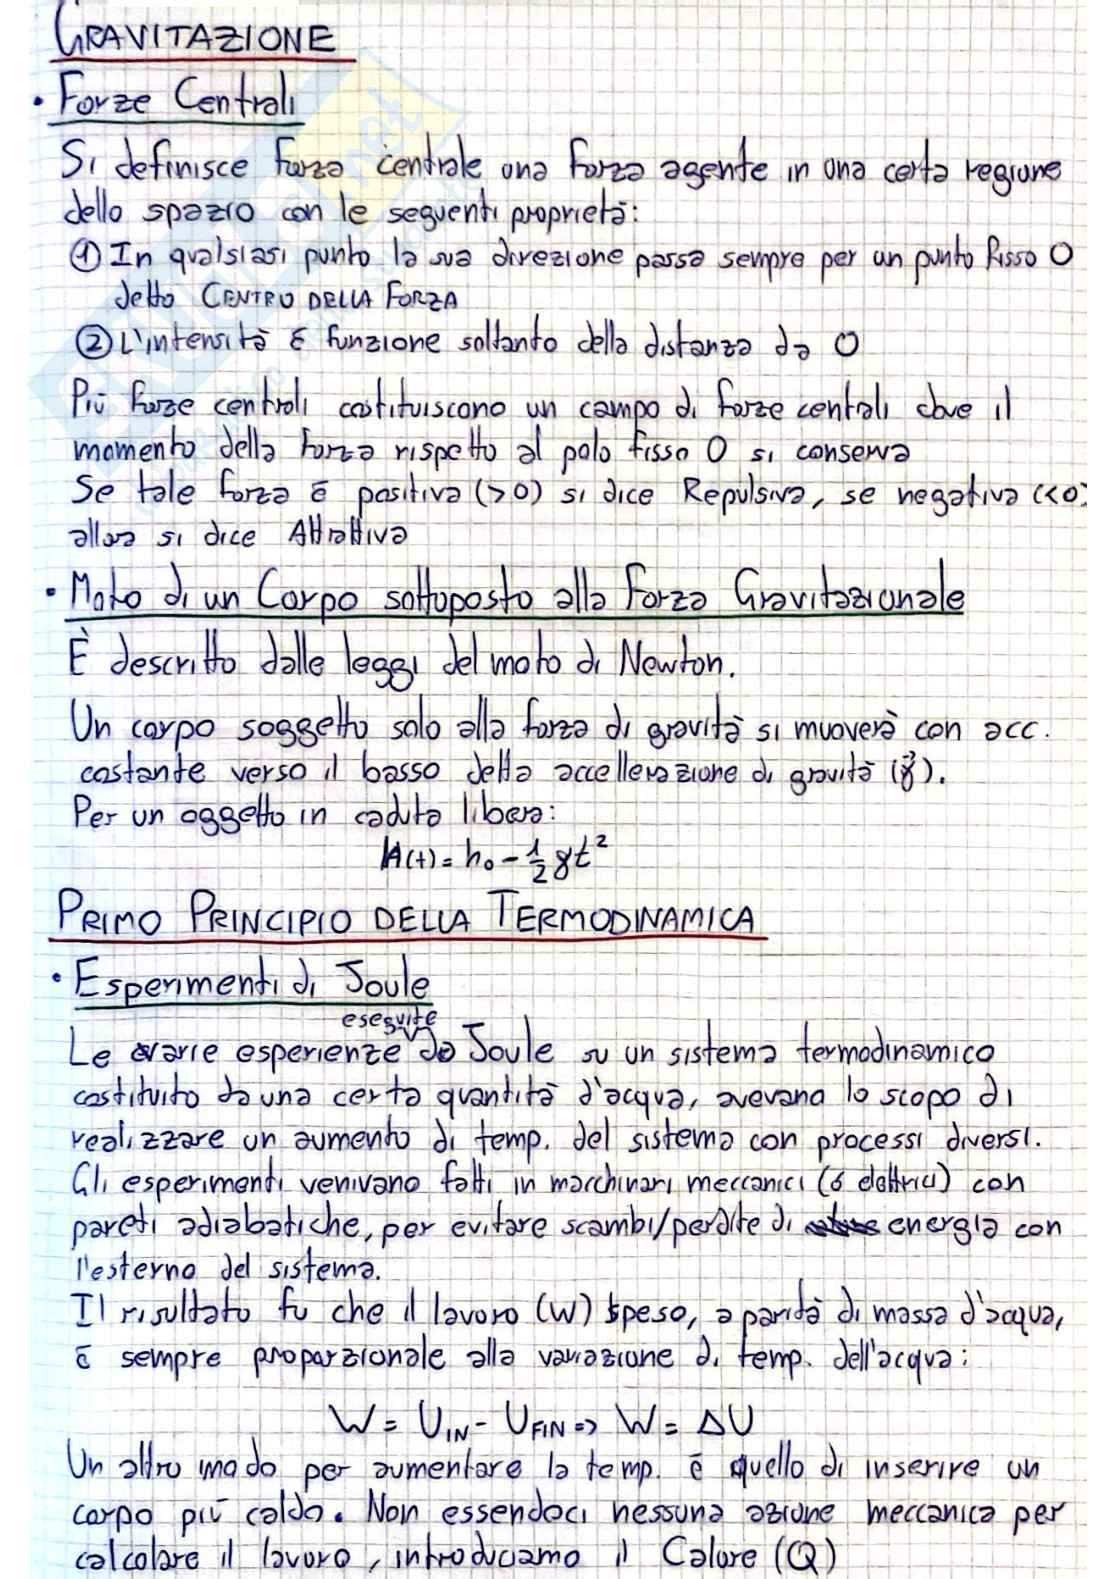 GRAVITAZIONE
• Forze Centrali
Si definisce forza centrale una forza agente in una certa regione
dello spazio con le seguenti proprietà:
① In qualsiasi punto la sua direzione passa sempre per un punto fisso O
detto CENTRO DELLA FORZA
② L'intensità è funzione soltanto della distanza da O
Più forze centrali costituiscono un campo di forze centrali dove il
momento della forza rispetto al polo fisso O si conserva
Se tale forza è positiva (>0) si dice Repulsiva, se negativa (<0)
allora si dice Attrattiva
• Moto di un Corpo sottoposto alla Forza Gravitazionale
È descritto dalle leggi del moto di Newton.
Un corpo soggetto solo alla forza di gravità si muoverà con acc.
costante verso il basso detta accellerazione di gravità (g⃗).
Per un oggetto in caduta libera:
h(t) = h₀ - 1/2 gt²
PRIMO PRINCIPIO DELLA TERMODINAMICA
• Esperimenti di Joule
eseguite
Le varie esperienze da Joule su un sistema termodinamico
costituito da una certa quantità d'acqua, avevano lo scopo di
realizzare un aumento di temp. del sistema con processi diversi.
Gli esperimenti venivano fatti in macchinari meccanici (ó elettrici) con
pareti adiabatiche, per evitare scambi/perdite di energia con
l'esterno del sistema.
Il risultato fu che il lavoro (W) speso, a parità di massa d'acqua,
è sempre proporzionale alla variazione di temp. dell'acqua:
W = U_IN - U_FIN => W = ΔU
Un altro modo per aumentare la temp. è quello di inserire un
corpo più caldo. Non essendoci nessuna azione meccanica per
calcolare il lavoro, introduciamo il Calore (Q)